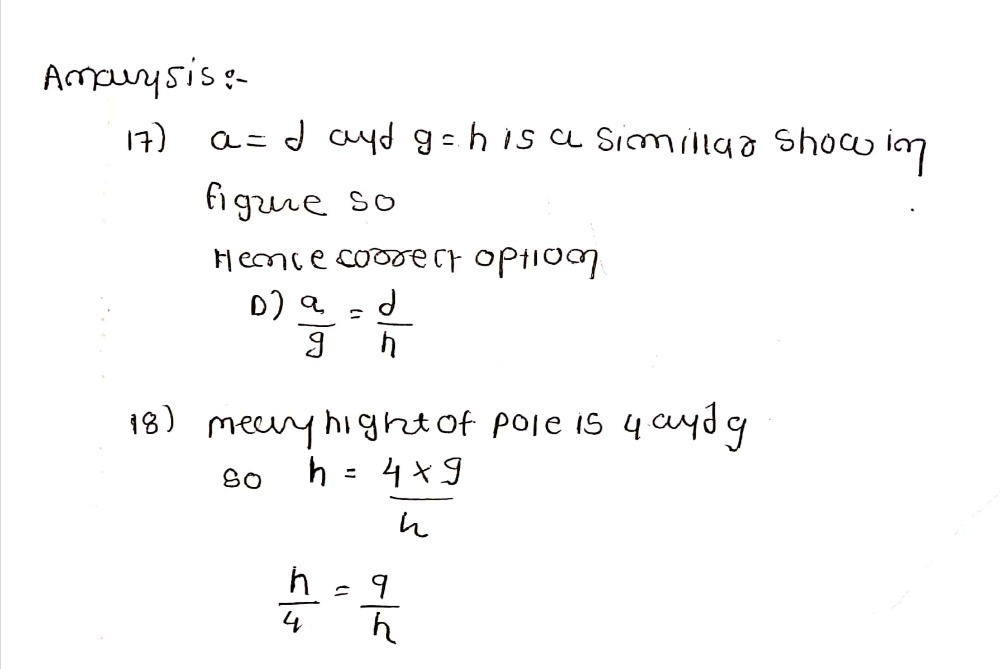 Analysis :-
17) a = d and g = h is a Simillar Show in
figure so
Hence correct option
D) a/g = d/h
18) mean hight of pole is 4 and 9
so h = 4 × 9 / h
h/4 = 9/h